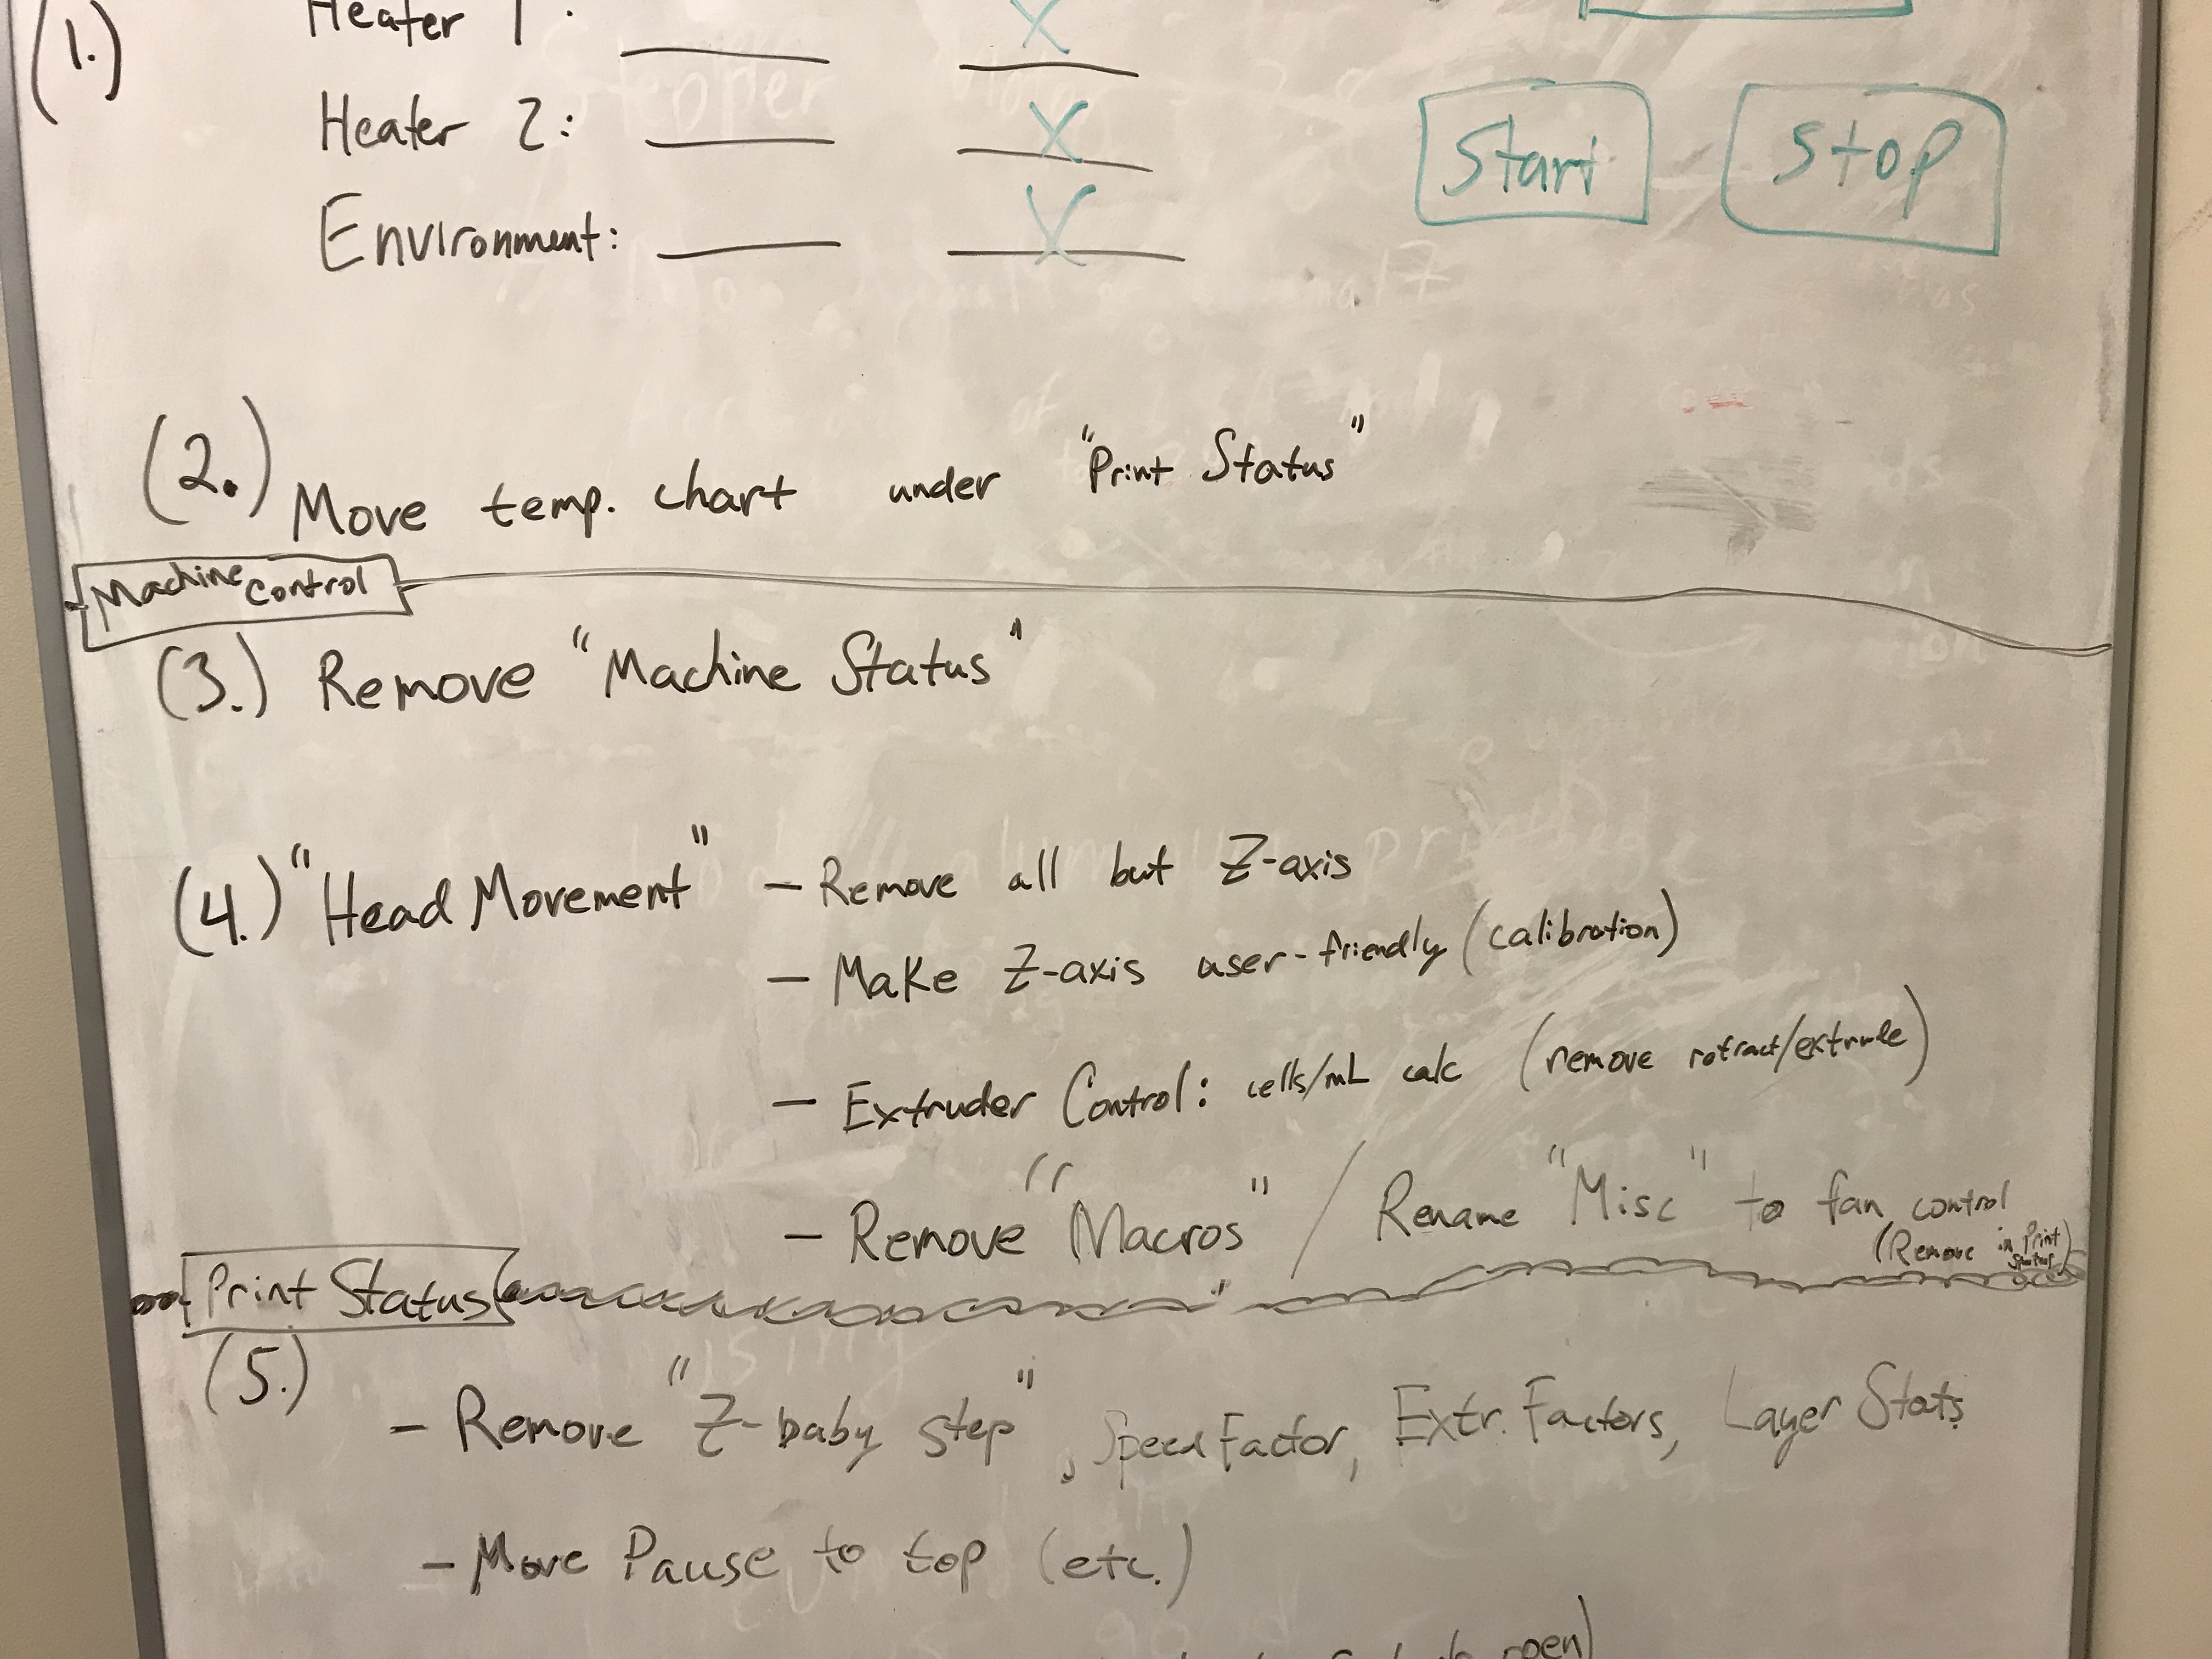 (1.) Heater 1: X
Heater 2: X
Start Stop
Environment: X
(2.) Move temp. chart under "Print Status"
Machine Control
(3.) Remove "Machine Status"
(4.) "Head Movement" - Remove all but Z-axis
- Make Z-axis user-friendly (calibration)
- Extruder Control: cells/mL calc (remove retract/extrude)
- Remove "Macros" / Rename "Misc" to fan control
(Remove in Print Status)
Print Status
(5.)
- Remove "Z-baby step", Speed Factor, Extr. Factors, Layer Stats
- Move Pause to top (etc.)
open)